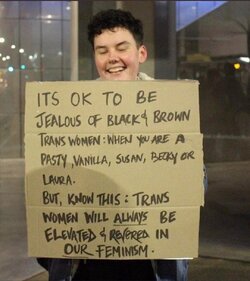 ITS OK TO BE
JEALOUS OF BLACK & BROWN
TRANS WOMEN: WHEN YOU ARE A
PASTY, VANILLA, SUSAN, BECKY OR
LAURA.
BUT, KNOW THIS: TRANS
WOMEN WILL ALWAYS BE
ELEVATED & REVERED IN
OUR FEMINISM.